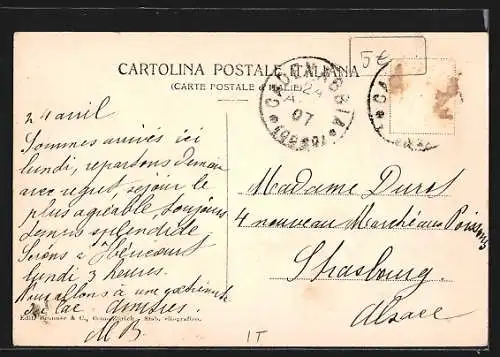 CARTOLINA POSTALE ITALIANA
(CARTE POSTALE d'ITALIE)
5€
CADENABBIA
24
07
24 avril
Sommes arrivés ici
lundi, repartons demain
avec regret, séjour le
plus agréable, toujours
temps splendide
Serons à Héricourt
lundi 3 heures.
Nous allons à une extrémité
du lac
M B.
Madame Durst
4 nouveau Marché aux Poissons
Strasbourg.
Alsace
Edit. Brunner & C., Como-Zürich - Stab. eliografico.
IT